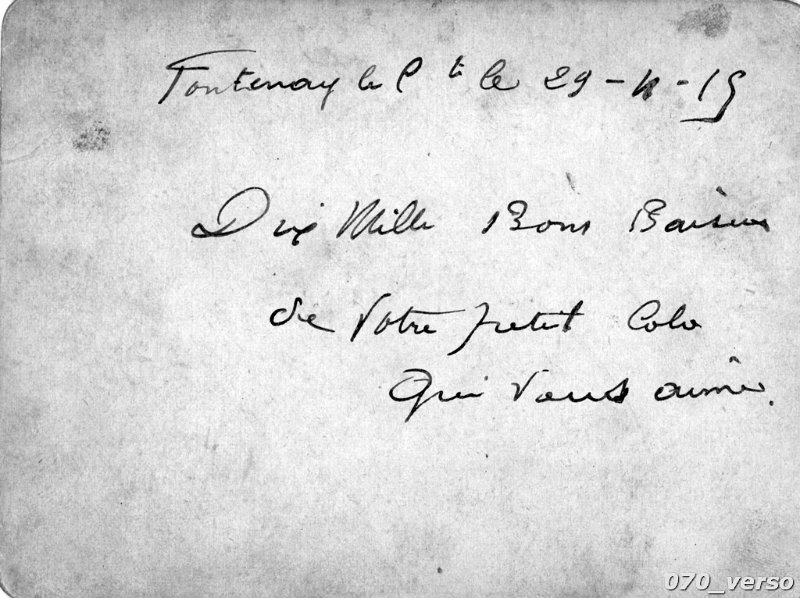 Fontenay le Cte le 29-11-15
Dix Mille Bons Baisers
de Votre petit Colo
Qui Vous aime.
070_verso